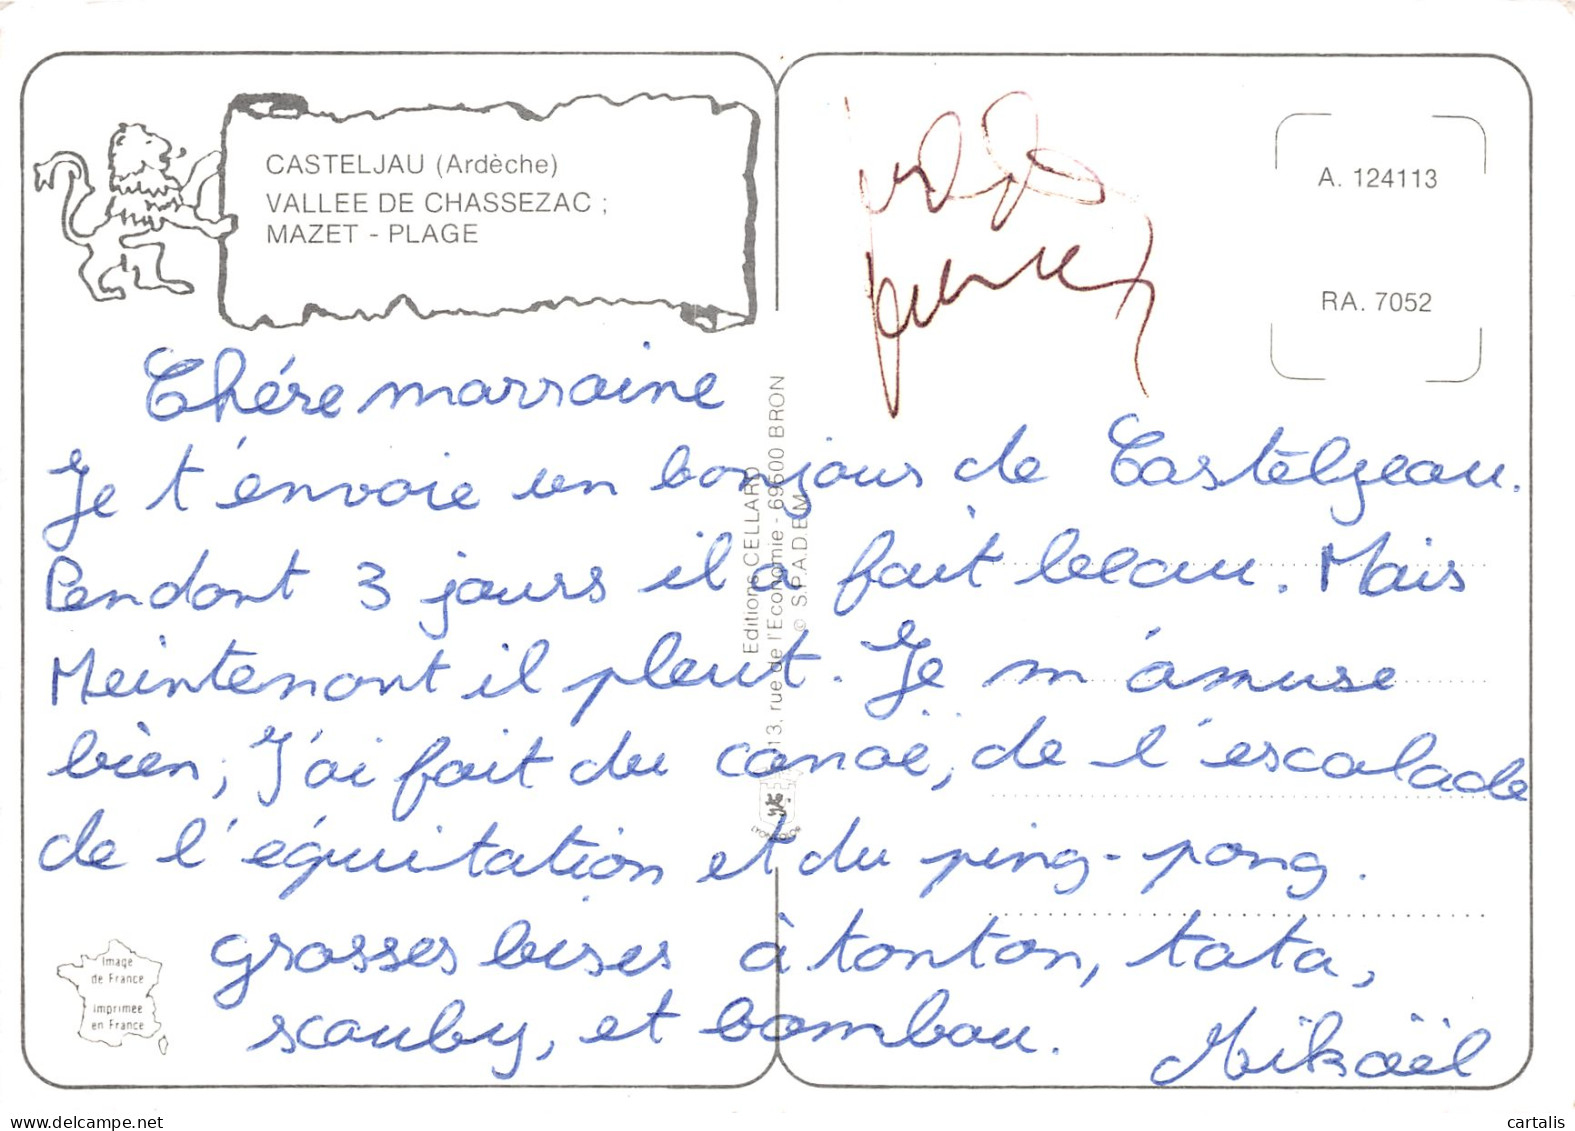 CASTELJAU (Ardèche)
VALLEE DE CHASSEZAC ;
MAZET - PLAGE
A. 124113
RA. 7052
Chére marraine
Je t'envoie un bonjour de Castelgeau.
Pendant 3 jours il a fait beau. Mais
Meintenant il pleut. Je m'amuse
bien, J'ai fait du canoë, de l'escalade
de l'équitation et du ping-pong.
grosses bises à tonton, tata,
scouby, et bambou.
Mikaël
Editions CELLARD
13, rue de l'Economie - 69500 BRON
© S.P.A.D.E.M.
Image
de France
Imprimée
en France
delcampe.net
cartalis